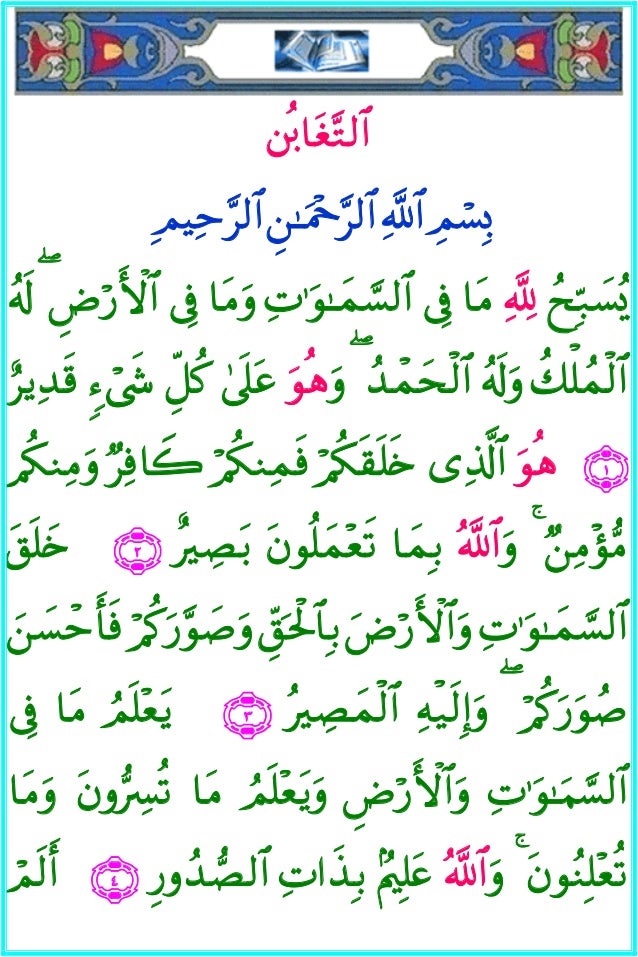 ٱلتَّغَابُن
بِسْمِ ٱللَّهِ ٱلرَّحْمَـٰنِ ٱلرَّحِيمِ
يُسَبِّحُ لِلَّهِ مَا فِى ٱلسَّمَـٰوَٰتِ وَمَا فِى ٱلْأَرْضِ ۖ لَهُ
ٱلْمُلْكُ وَلَهُ ٱلْحَمْدُ ۖ وَهُوَ عَلَىٰ كُلِّ شَىْءٍ قَدِيرٌ
١ هُوَ ٱلَّذِى خَلَقَكُمْ فَمِنكُمْ كَافِرٌ وَمِنكُم
مُّؤْمِنٌ ۚ وَٱللَّهُ بِمَا تَعْمَلُونَ بَصِيرٌ ٢ خَلَقَ
ٱلسَّمَـٰوَٰتِ وَٱلْأَرْضَ بِٱلْحَقِّ وَصَوَّرَكُمْ فَأَحْسَنَ
صُوَرَكُمْ ۖ وَإِلَيْهِ ٱلْمَصِيرُ ٣ يَعْلَمُ مَا فِى
ٱلسَّمَـٰوَٰتِ وَٱلْأَرْضِ وَيَعْلَمُ مَا تُسِرُّونَ وَمَا
تُعْلِنُونَ ۚ وَٱللَّهُ عَلِيمٌۢ بِذَاتِ ٱلصُّدُورِ ٤ أَلَمْ